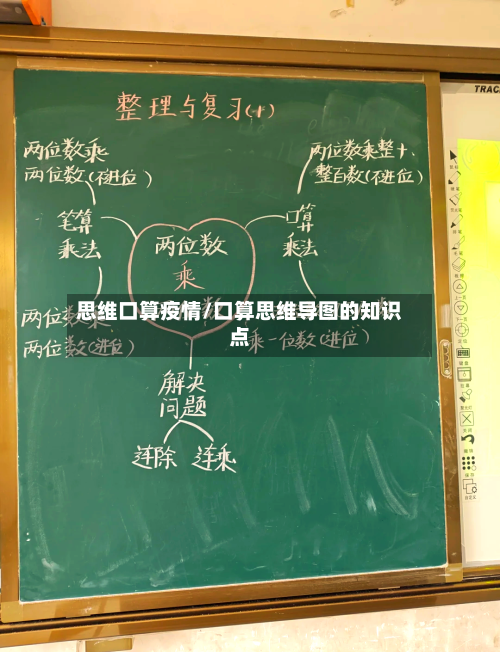 整理与复习(1)
两位数乘
两位数(不进位)
两位数乘整十、
整百数(不进位)
笔算
乘法
口算
乘法
两位数
乘
思维口算疫情/口算思维导图的知识
点
两位数乘
两位数(进位)
乘一位数(进位)
解决
问题
连除 连乘
TRAC